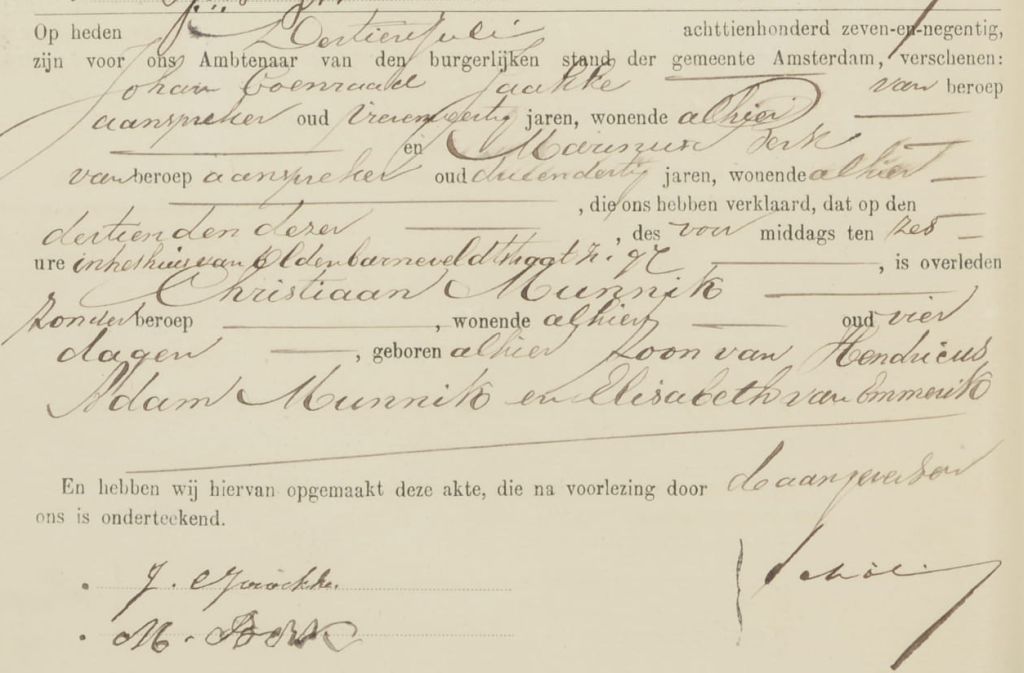 Op heden Dertien Juli achttienhonderd zeven-en-negentig,
zijn voor ons Ambtenaar van den burgerlijken stand der gemeente Amsterdam, verschenen:
Johan Coenraad Jaakke van beroep
aanspreker oud jaren, wonende alhier
en Marinus Derk
van beroep aanspreker oud drieendertig jaren, wonende alhier
, die ons hebben verklaard, dat op den
dertienden dezer , des voor middags ten zes
ure in het huis van Oldenbarneveldtstraat N: 97 , is overleden
Christiaan Munnik
zonder beroep , wonende alhier oud vier
dagen , geboren alhier zoon van Hendricus
Adam Munnik en Elisabeth van Emmerik
En hebben wij hiervan opgemaakt deze akte, die na voorlezing door de aangevers en
ons is onderteekend.
J. Jaakke.
M. Derk